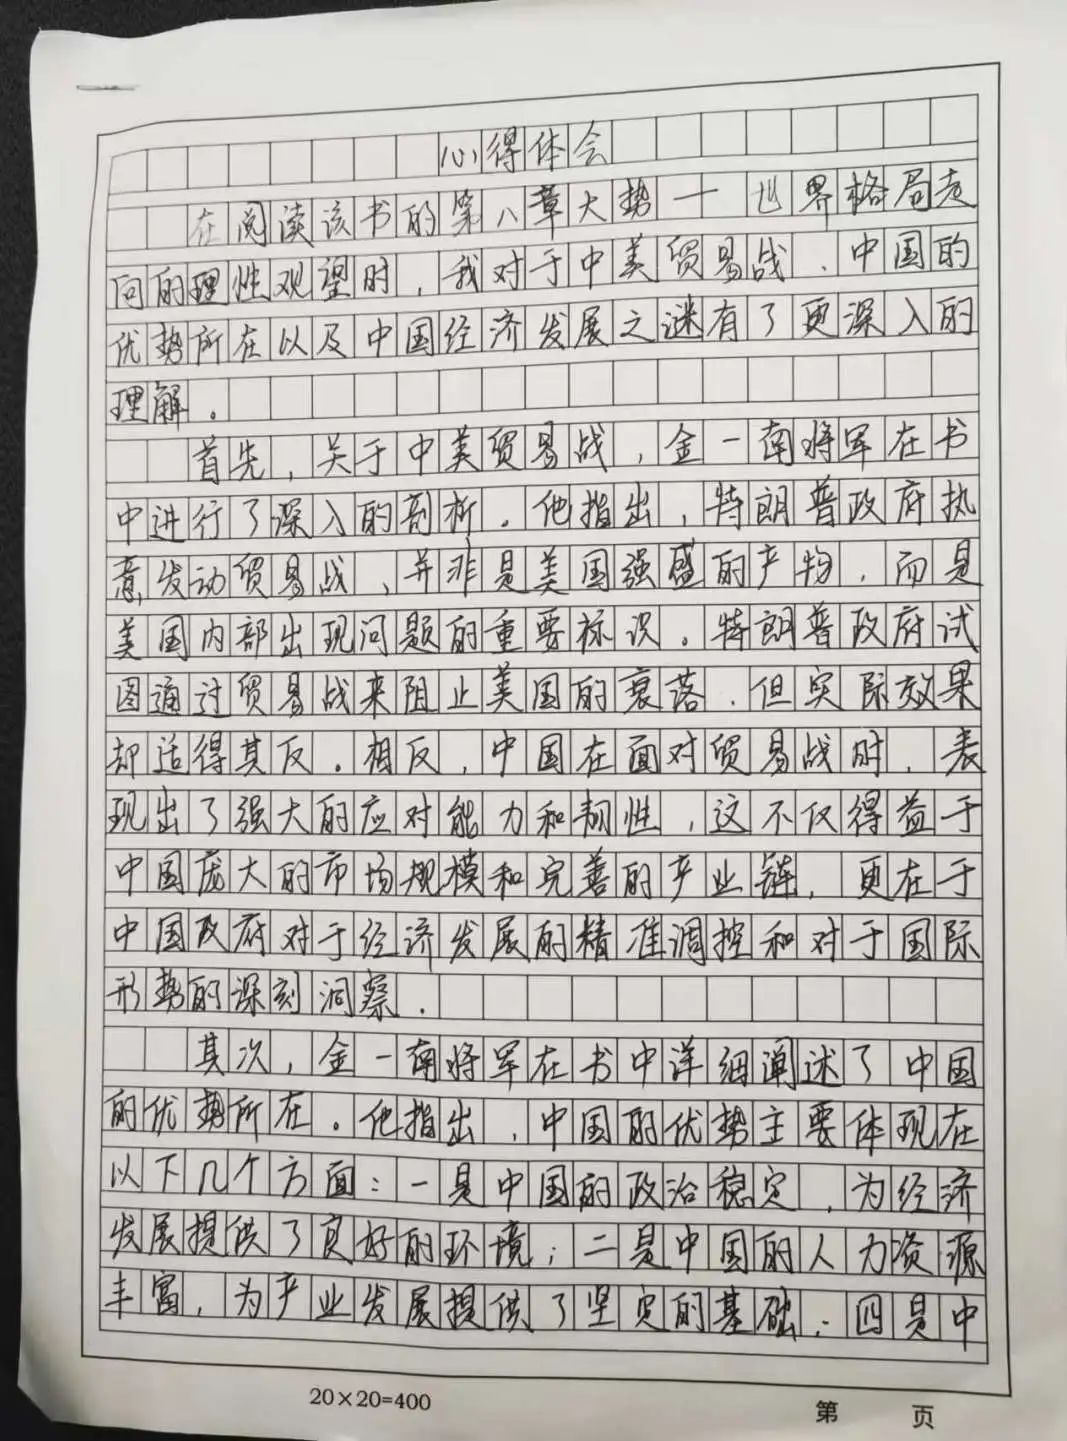 心得体会
在阅读该书的第八章大势一世界格局走
向的理性观望时，我对于中美贸易战、中国的
优势所在以及中国经济发展之谜有了更深入的
理解。
首先，关于中美贸易战，金一南将军在书
中进行了深入的剖析。他指出，特朗普政府执
意发动贸易战，并非是美国强盛的产物，而是
美国内部出现问题的重要标识。特朗普政府试
图通过贸易战来阻止美国的衰落，但实际效果
却适得其反。相反，中国在面对贸易战时，表
现出了强大的应对能力和韧性，这不仅得益于
中国庞大的市场规模和完善的产业链，更在于
中国政府对于经济发展的精准调控和对于国际
形势的深刻洞察。
其次，金一南将军在书中详细阐述了中国
的优势所在。他指出，中国的优势主要体现在
以下几个方面：一是中国的政治稳定，为经济
发展提供了良好的环境；二是中国的人力资源
丰富，为产业发展提供了坚实的基础；四是中
20×20=400
第 页